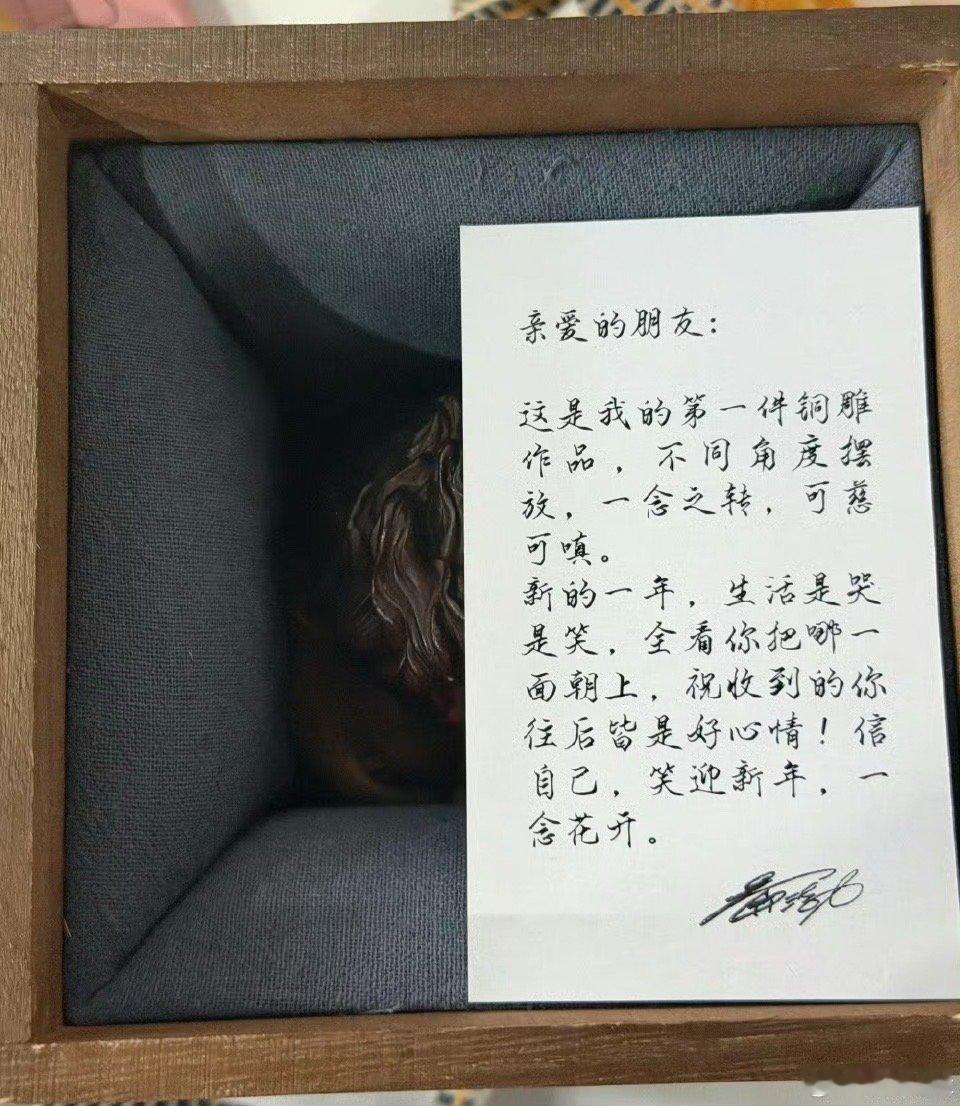 亲爱的朋友：
这是我的第一件铜雕
作品，不同角度摆
放，一念之转，可慈
可嗔。
新的一年，生活是哭
是笑，全看你把哪一
面朝上，祝收到的你
往后皆是好心情！信
自己，笑迎新年，一
念花开。